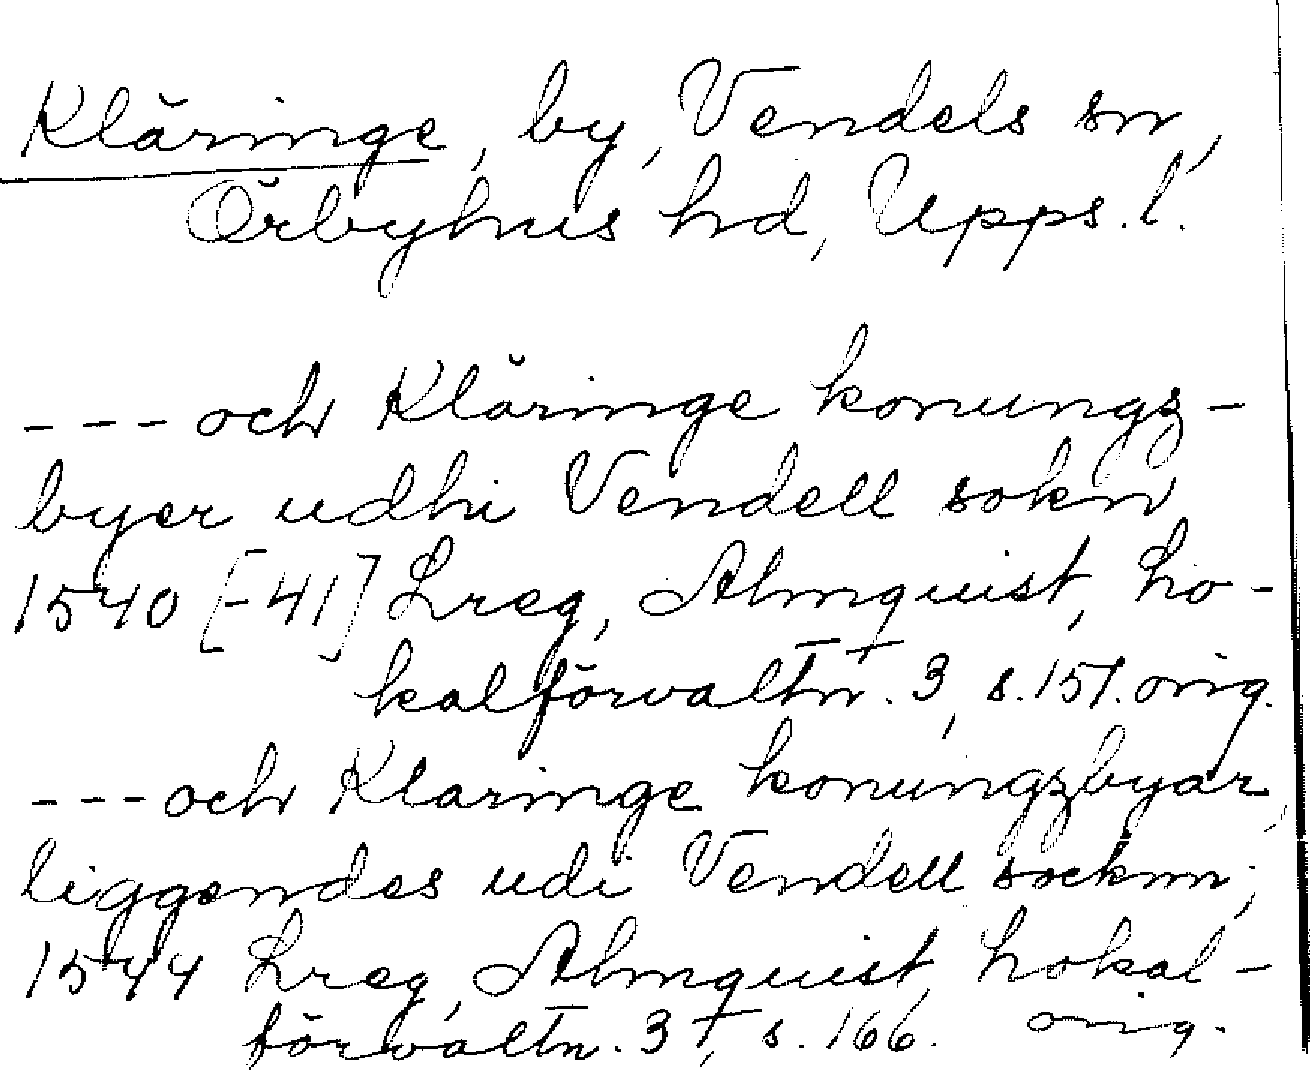 Kläringe, by, Vendels sn,
Örbyhus hd, Upps. l.
--- och Kläringe konungz-
byer udhi Vendell sokn
1540 [-41] Lreg, Almquist, Lo-
kalförvaltn. 3, s. 151. orig.
--- och Klaringe konungzbyar,
liggendes udi Vendell socknn;
1544 Lreg, Almquist, Lokal-
förvaltn. 3, s. 166. orig.